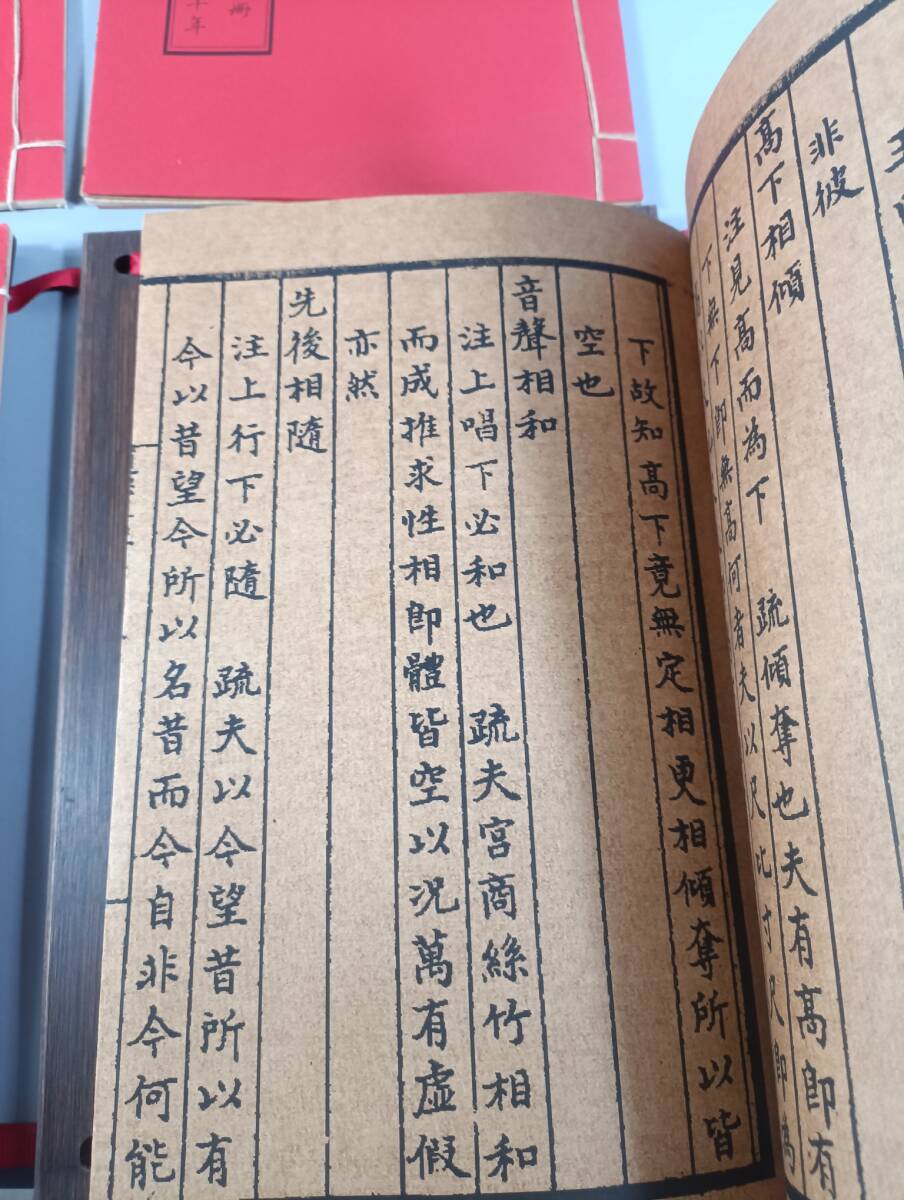 册
十年
非彼
高下相傾
注見高而為下 疏傾奪也夫有高即有
下無下即無高何者夫以尺比寸尺即為
下故知高下竟無定相更相傾奪所以皆
空也
音聲相和
注上唱下必和也 疏夫宮商絲竹相和
而成推求性相即體皆空以況萬有虛假
亦然
先後相隨
注上行下必隨 疏夫以今望昔所以有
今以昔望今所以名昔而今自非今何能